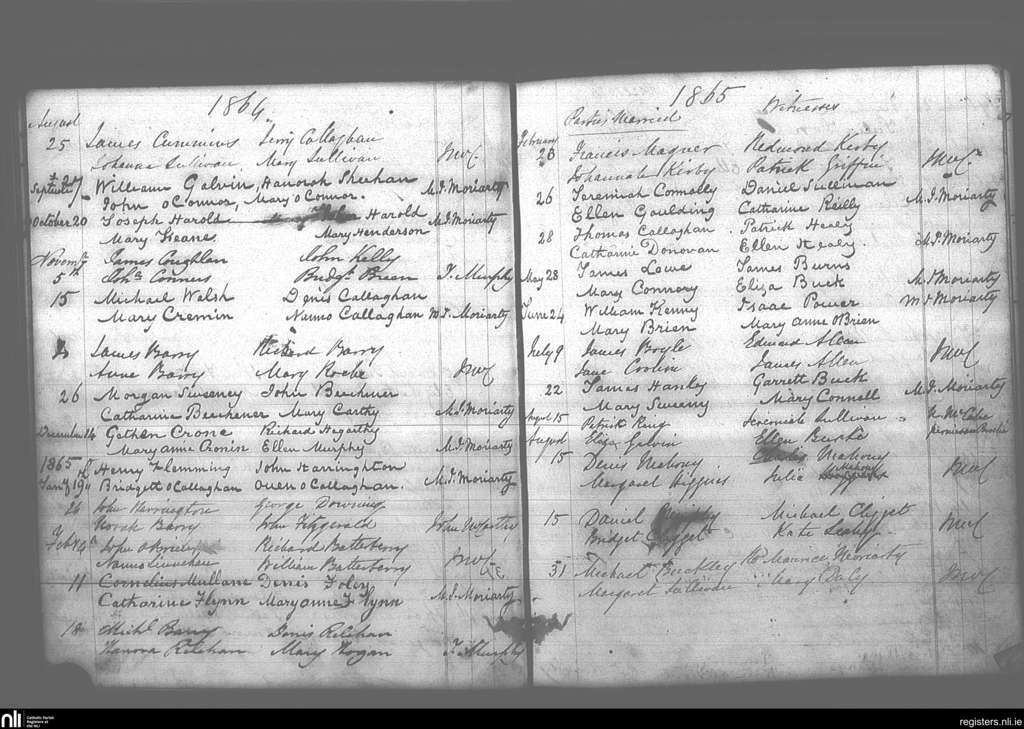 1864
August
25 James Cummins Jerry Callaghan
Johanna Sullivan Mary Sullivan JMcC
Septembr 27 William Galvin, Hanorah Sheehan
John O'Connor, Mary O'Connor. M.J. Moriarty
October 20 Joseph Harold Harold M.J. Moriarty
Mary Keane Mary Henderson
Novembr James Coughlan John Kelly
5th Johª Connors Bridgt Brien J. Murphy
15 Michael Walsh Denis Callaghan
Mary Cremin Nanno Callaghan M.J. Moriarty
James Barry Richard Barry
Anne Barry Mary Roche
26 Morgan Sweeney John Beechiner
Catharine Beechener Mary Carthy M.J. Moriarty
December 14 Gethen Crone Richard Hegarthy
Mary anne Cronin Ellen Murphy M.J. Moriarty
1865 Henry Flemming John Harringhton
Jany 19 Bridgett O'Callaghan Owen O'Callaghan. M.J. Moriarty
26 John Harrington George Downing
Norah Barry John Fitzgerald John
Feby 4 John O'Brien Richard Batterberry
Nanno William Batterberry
11 Cornelius Mullane Denis Foley
Catharine Flynn Maryanne Flynn M.J. Moriarty
18 Michl Barry Denis Relehan
Hanora Relehan Mary Horgan J. Murphy
1865
Parties Married Witnesses
February
23 Francis Magner Redmond Kirby
Johannah Kirby Patrick Griffin
26 Jeremiah Connolly Daniel Sullivan
Ellen Goulding Catharine Reilly M.J. Moriarty
28 Thomas Callaghan Patrick Healy
Catharine Donovan Ellen Healy. M.J. Moriarty
May 28 James Lowe James Burns
Mary Connory Eliza Buck M.J. Moriarty
June 24 William Kenny Isaac Power M.J. Moriarty
Mary Brien Mary Anne O'Brien
July 9 James Boyle Edmund Allen
Jane James Allen
22 James Hanley Garrett Buck
Mary Sweeny Mary Connell M.J. Moriarty
August 15 Patrick King Jeremiah Sullivan
August Eliza Galvin Ellen Burke
15 Denis Mahony Mahony
Margaret Higgins Julia
15 Daniel Michael Clifford
Bridget Kate
31 Michael Buckley Maurice Moriarty
Margaret Sullivan Mary Daly
nli
Catholic Parish
Registers at
the NLI
registers.nli.ie